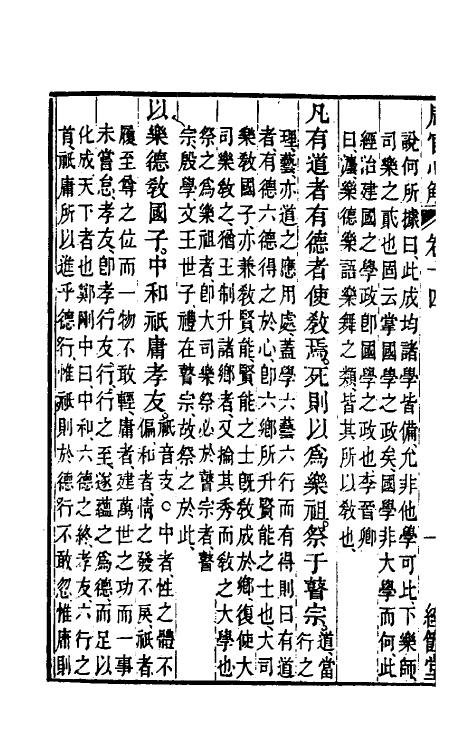 周官心解 卷十四 一 經管堂
說何所據曰此成均諸學皆備尤非他學可比下樂師
司樂之貳也固云掌國學之政矣國學非大學而何此
經治建國之學政卽國學之政也李晉卿
曰灋樂德樂語樂舞之類皆其所以敎也
凡有道者有德者使敎焉死則以爲樂祖祭于瞽宗道當行之
理藝亦道之應用處蓋學六藝六行而有得則曰有道
者有德六德得之於心卽六鄉所升賢能之士也大司
樂敎國子亦兼敎賢能賢能之士旣敎成於鄉復使大
司樂敎之猶王制升諸鄉者又掄其秀而敎之大學也
祭之爲樂祖者卽大司樂祭必於瞽宗者瞽
宗殷學文王世子禮在瞽宗故祭之於此
以樂德敎國子中和祗庸孝友祗音支○中者性之體不偏和者情之發不戾祗者
履至尊之位而一物不敢輕庸者建萬世之功而一事
未嘗怠孝友卽孝行友行行之至遂蘊之爲德而足以
化成天下者也鄭剛中曰中和六德之終孝友六行之
首祗庸所以進乎德行惟祗則於德行不敢忽惟庸則